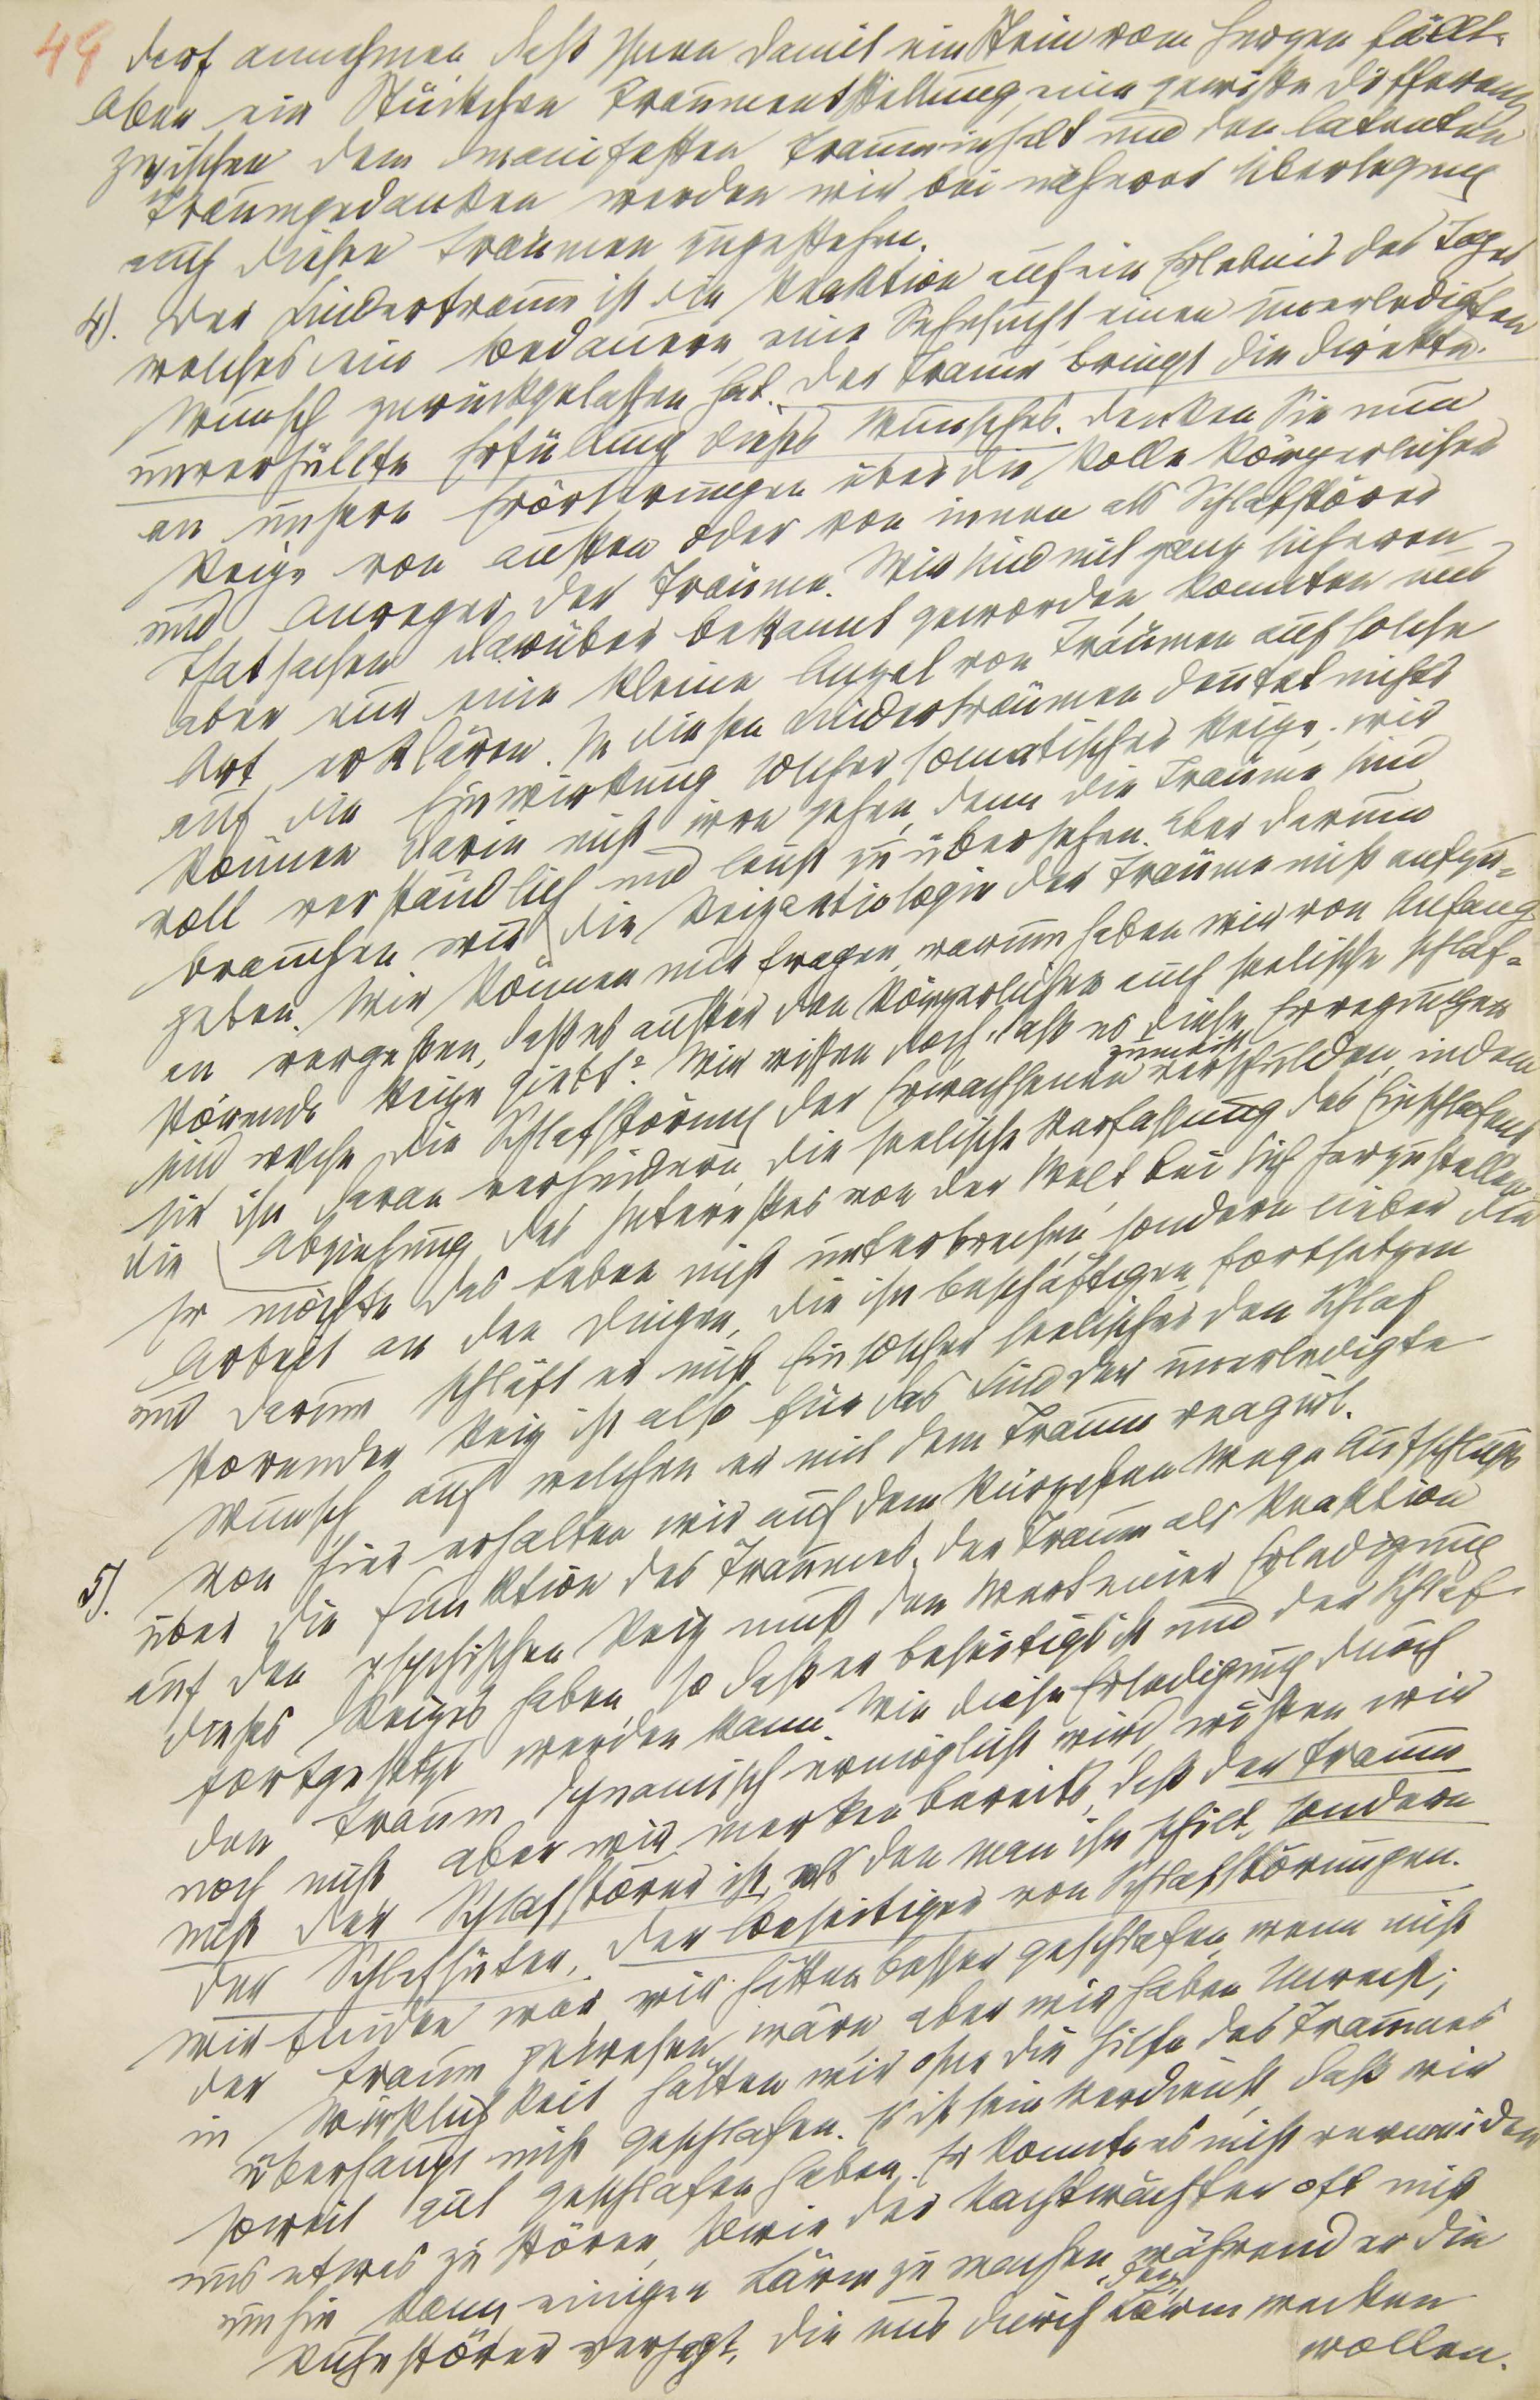 49 darf annehmen daß Ihnen damit ein Stein vom Herzen fällt.
Aber ein Stückchen Traumentstellung, eine gewisse Differenz
zwischen dem manifesten Trauminhalt und den latenten
Traumgedanken werden wir bei näherer Überlegung
auch diesen Träumen zugestehen.
4). Der Kindertraum ist die Reaktion auf ein Erlebnis des Tages
welches ein Bedauern, eine Sehnsucht einen unerledigten
Wunsch zurückgelassen hat. Der Traum bringt die direkte.
unverhüllte Erfüllung dieses Wunsches. Denken Sie nun
an unsere Erörterungen über die Rolle körperlicher
Reize von außen oder von innen als Schlafstörer
und Anreger der Träume. Wir sind mit ganz sicheren
Thatsachen darüber bekannt geworden, konnten uns
aber nur eine kleine Anzal von Träumen auf solche
Art erklären. In diesen Kinderträumen deutet nichts
auf die Einwirkung solcher somatischer Reize. wir
können darin nicht irre gehen, denn die Träume sind
voll verständlich und leicht zu übersehen. Aber darum
brauchen wir die Reizaetiologie der Träume nicht aufzu=
geben. Wir können nur fragen, warum haben wir von Anfang
an vergessen, daß es außer den körperlichen auch seelische schlaf=
störende Reize giebt? Wir wissen doch, daß es diese Erregungen
sind, welche die Schlafstörung der Erwachsenen zumeist verschulden, indem
sie ihn daran verhindern, die seelische Verfassung des Einschlafens
die Abziehung des Interesses von der Welt bei sich herzustellen
Er möchte das Leben nicht unterbrechen, sondern lieber die
Arbeit an den Dingen, die ihn beschäftigen, fortsetzen
und darum schläft er nicht. Ein solcher seelischer den Schlaf
störender Reiz ist also für das Kind der unerledigte
Wunsch, auf welchen es mit dem Traum reagirt.
5). Von hier erhalten wir auf dem kürzesten Wege Aufschluss
über die Funktion des Traumes. Der Traum als Reaktion
auf den psychischen Reiz muß den Wert einer Erledigung
dieses Reizes haben, so daß er beseitigt ist und der Schlaf
fortgesetzt werden kann. Wie diese Erledigung durch
den Traum dynamisch ermöglicht wird, wissen wir
noch nicht aber wir merken bereits, daß der Traum
nicht der Schlafstörer ist, als den man ihn schilt, sondern
der Schlafhüter, der Beseitiger von Schlafstörungen.
Wir finden zwar, wir hätten besser geschlafen, wenn nicht
der Traum gewesen wäre, aber wir haben Unrecht;
in Wirklichkeit hätten wir ohne die Hilfe des Traumes
überhaupt nicht geschlafen. Es ist sein Verdienst, daß wir
soweit gut geschlafen haben. Er konnte es nicht vermeiden
uns etwas zu stören, sowie der Nachtwächter oft nicht
umhin kann, einigen Lärm zu machen, während er die
Ruhestörer verjagt, die uns durch Lärm wecken
wollen.